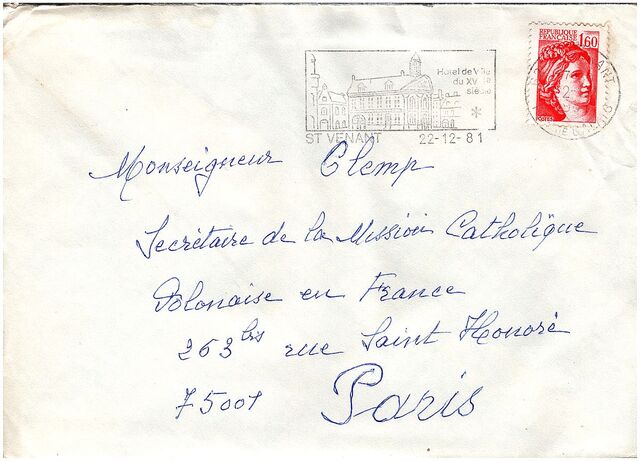 REPUBLIQUE
FRANÇAISE 1,60
POSTES
Hotel de Ville
du XVI e
siècle
ST VENANT 22-12-81
Monseigneur Glemp
Secrétaire de la Mission Catholique
Polonaise en France
263 bis rue Saint Honoré
75001 Paris